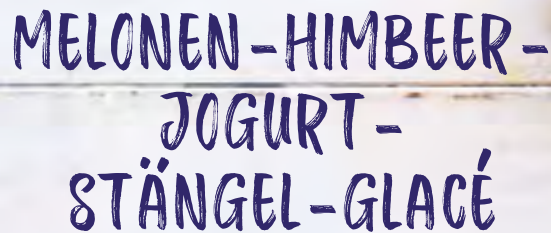 MELONEN-HIMBEER-
JOGURT-
STÄNGEL-GLACÉ